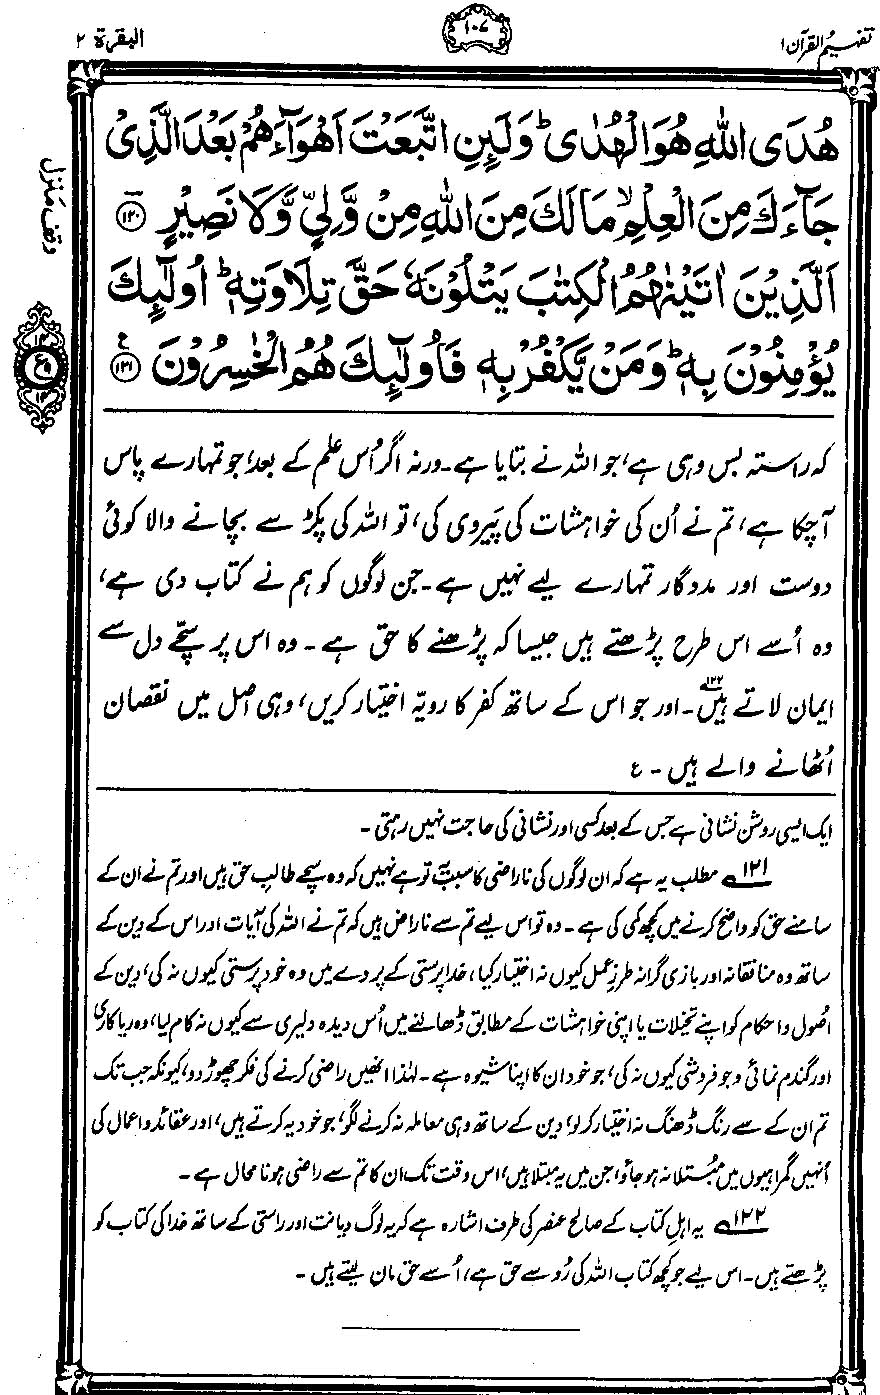 تفہیم القرآن ۱
۱۰۷
البقرۃ ۲
هُدَى اللّٰهِ هُوَ الْهُدٰى ؕ وَلَئِنِ اتَّبَعْتَ اَهْوَآءَهُمْ بَعْدَ الَّذِىْ
جَآءَكَ مِنَ الْعِلْمِ ۙ مَا لَكَ مِنَ اللّٰهِ مِنْ وَّلِىٍّ وَّلَا نَصِيْرٍ ؔ ﴿۱۲۰﴾
اَلَّذِيْنَ اٰتَيْنٰهُمُ الْكِتٰبَ يَتْلُوْنَهٗ حَقَّ تِلَاوَتِهٖ ؕ اُولٰٓئِكَ
يُؤْمِنُوْنَ بِهٖ ؕ وَمَنْ يَّكْفُرْ بِهٖ فَاُولٰٓئِكَ هُمُ الْخٰسِرُوْنَ ﴿۱۲۱﴾ ع
وقف منزل
ع
۱۴
کہ راستہ بس وہی ہے، جو اللہ نے بتایا ہے۔ ورنہ اگر اُس علم کے بعد، جو تمہارے پاس
آچکا ہے، تم نے اُن کی خواہشات کی پیروی کی، تو اللہ کی پکڑ سے بچانے والا کوئی
دوست اور مددگار تمہارے لیے نہیں ہے۔ جن لوگوں کو ہم نے کتاب دی ہے،
وہ اُسے اس طرح پڑھتے ہیں جیسا کہ پڑھنے کا حق ہے۔ وہ اس پر سچّے دل سے
ایمان لاتے ہیں۱۲۲۔ اور جو اس کے ساتھ کفر کا رویّہ اختیار کریں، وہی اصل میں نقصان
اُٹھانے والے ہیں۔ ع
ایک ایسی روشن نشانی ہے جس کے بعد کسی اور نشانی کی حاجت نہیں رہتی۔
۱۲۱ مطلب یہ ہے کہ ان لوگوں کی ناراضی کا سبب یہ تو ہے نہیں کہ وہ سچے طالبِ حق ہیں اور تم نے ان کے
سامنے حق کو واضح کرنے میں کچھ کمی کی ہے۔ وہ تو اس لیے تم سے ناراض ہیں کہ تم نے اللہ کی آیات اور اس کے دین کے
ساتھ وہ منافقانہ اور بازی گرانہ طرزِ عمل کیوں نہ اختیار کیا، خدا پرستی کے پردے میں وہ خود پرستی کیوں نہ کی، دین کے
اُصول و احکام کو اپنے تخیّلات یا اپنی خواہشات کے مطابق ڈھالنے میں اُس دیدہ دلیری سے کیوں نہ کام لیا، وہ ریاکاری
اور گندم نمائی و جو فروشی کیوں نہ کی، جو خود ان کا اپنا شیوہ ہے۔ لہٰذا انھیں راضی کرنے کی فکر چھوڑ دو، کیونکہ جب تک
تم ان کے سے رنگ ڈھنگ نہ اختیار کرلو، دین کے ساتھ وہی معاملہ نہ کرنے لگو، جو خود یہ کرتے ہیں، اور عقائد و اعمال کی
اُنہیں گمراہیوں میں مُبتلا نہ ہو جاؤ، جن میں یہ مبتلا ہیں، اس وقت تک ان کا تم سے راضی ہونا محال ہے۔
۱۲۲ یہ اہلِ کتاب کے صالح عنصر کی طرف اشارہ ہے کہ یہ لوگ دیانت اور راستی کے ساتھ خدا کی کتاب کو
پڑھتے ہیں۔ اس لیے جو کچھ کتاب اللہ کی رُو سے حق ہے، اُسے حق مان لیتے ہیں۔